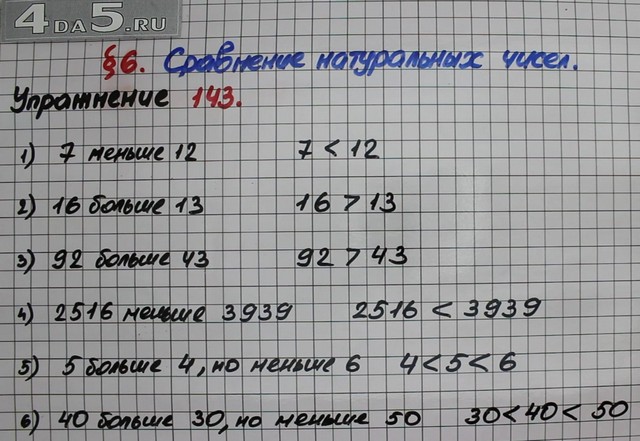 4DA5.RU
§6. Сравнение натуральных чисел.
Упражнение 143.
1) 7 меньше 12 7 < 12
2) 16 больше 13 16 > 13
3) 92 больше 43 92 > 43
4) 2516 меньше 3939 2516 < 3939
5) 5 больше 4, но меньше 6 4 < 5 < 6
6) 40 больше 30, но меньше 50 30 < 40 < 50